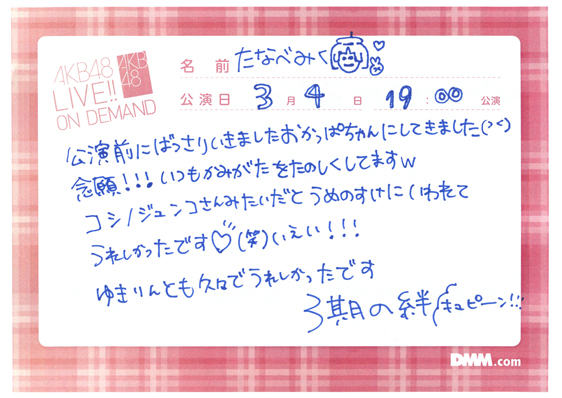 AKB48
LIVE!!
ON DEMAND
AKB
48
名 前 たなべみく
公演日 3 月 4 日 19:00 公演
公演前にばっさりいきましたおかっぱちゃんにしてきました(><)
念願!!!いつもかみがたをたのしくしてますw
コシノジュンコさんみたいだとうめのすけにいわれて
うれしかったです♡(笑)いえい!!!
ゆきりんとも久々でうれしかったです
3期の絆 キュピーン!!!
DMM.com